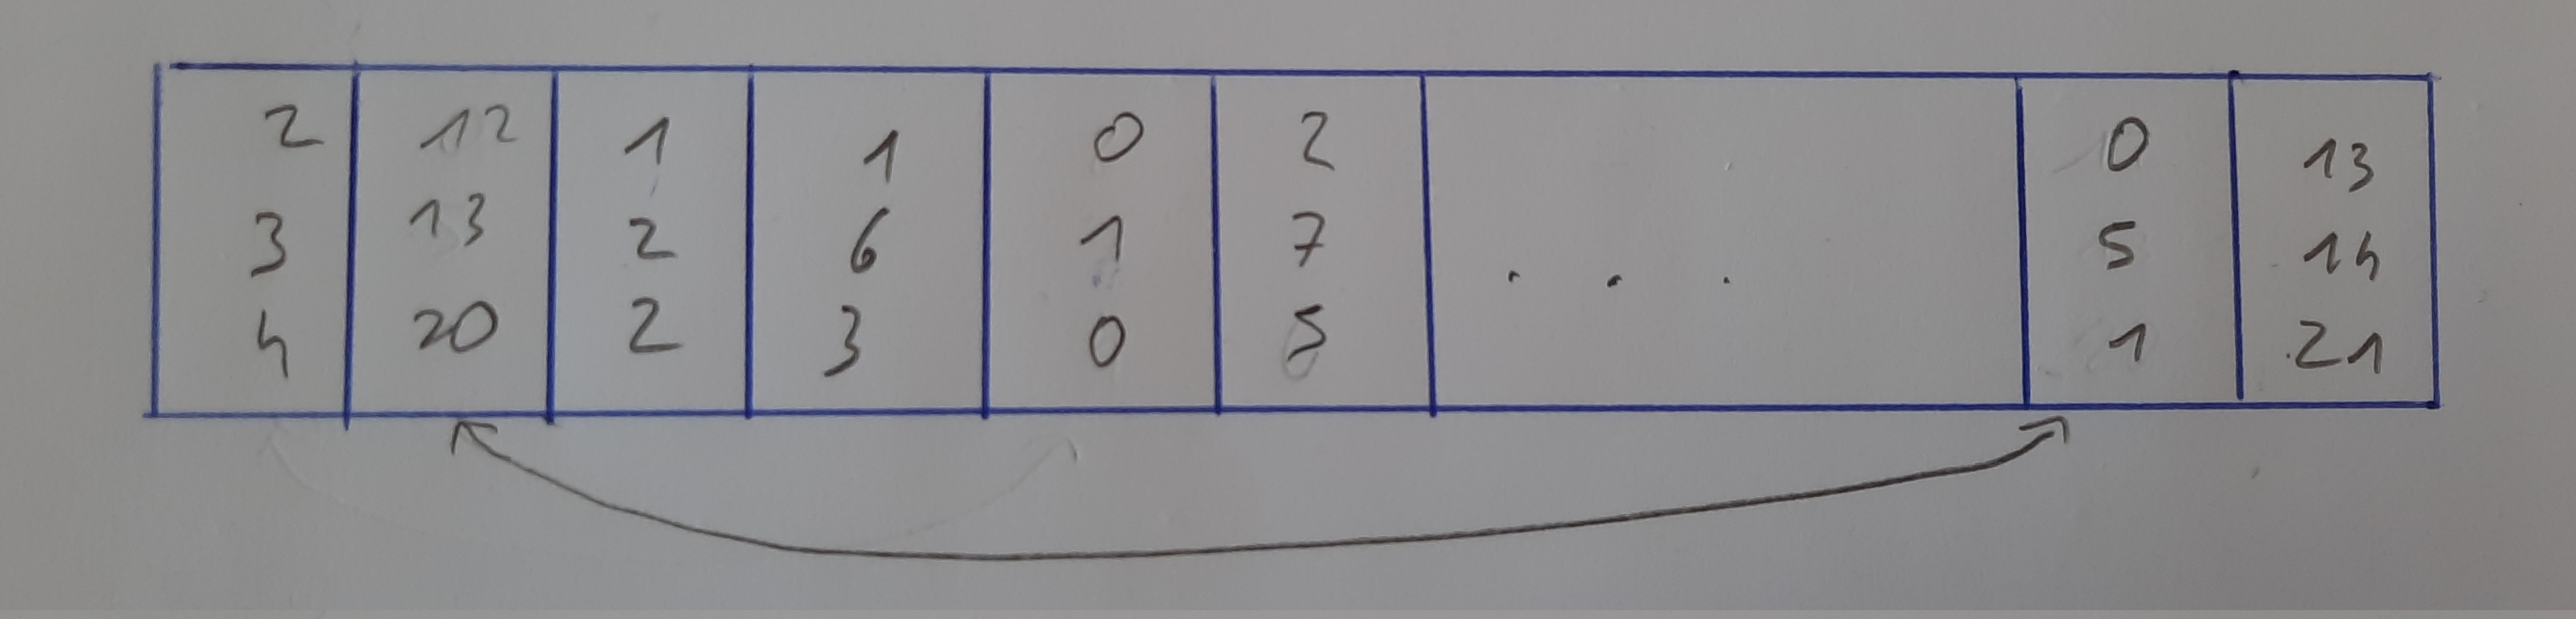 2 12 1 1 0 2 0 13
3 13 2 6 1 7 . . . 5 14
4 20 2 3 0 5 1 21